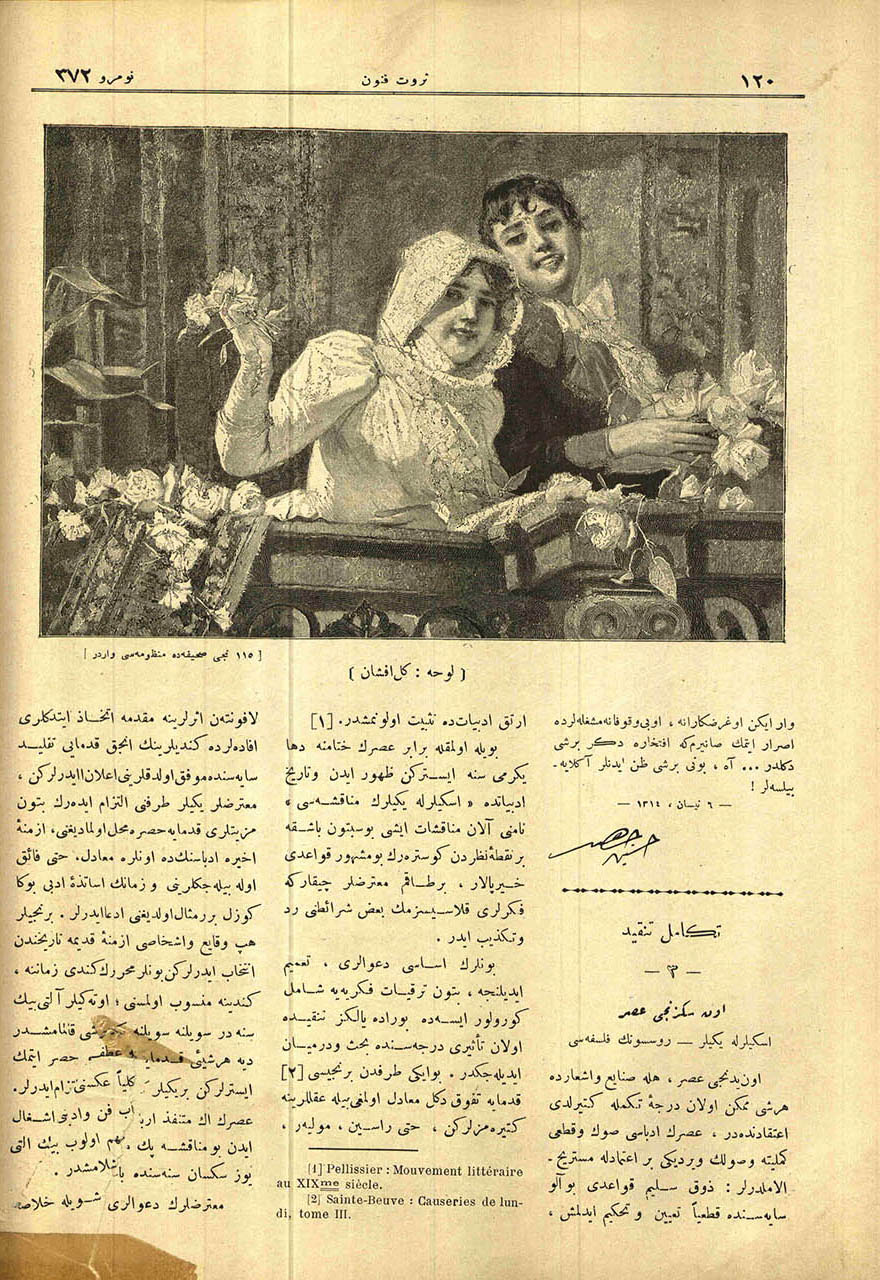 ١٢٠
ثروت فنون
نومرو ٣٧٢
[ ١١٥ نجی صحیفه‌ده منظومه‌سی واردر ]
( لوحه : کل‌افشان )
وار ایکن او غرضکارانه ، او بی‌وقوفانه مشغله‌لرده
اصرار ایتمك صانیرم‌که افتخاره دکر برشی
دکلدر ... آه ، بونی برشی ظن ایدنلر آکلایه‌-
بیلسه‌لر !
— ٦ نیسان ، ١٣١٤ —
تکامل تنقید
— ٣ —
اون سکزنجی عصر
اسکیلرله یکیلر — روسونك فلسفه‌سی
اون‌یدنجی عصر ، هله صنایع واشعارده
هرشی ممکن اولان درجهٔ تکمله کتیرلدی
اعتقادنده‌در ، عصرك ادباسی صوك وقطعی
کملیته وصولك ویردیکی بر اعتدادله مستریح-
الاملدرلر : ذوق سلیم قواعدی بوآلو
سایه‌سنده قطعیاً تعیین و تحکیم ایدلمش ،
ارتق ادبیات‌ده تثبیت اولونمشدر. [١]
بویله اولمقله برابر عصرك ختامنه دها
یکرمی سنه ایسترکن ظهور ایدن وتاریخ
ادبیاتده « اسکیلرله یکیلرك مناقشه‌سی »
نامنی آلان مناقشات ایشی بوسبتون باشقه
بر نقطهٔ نظردن کوستره‌رك بومشهور قواعدی
خیرپالار ، برطاقم معترضلر چیقارکه
فکرلری قلاسیسزمك بعض شرائطنی رد
وتکذیب ایدر .
بونلرك اساسی دعوالری ، تعمیم
ایدیلنجه ، بتون ترقیات فکریه‌یه شامل
کورولور ایسه‌ده بوراده یالکز تنقیده
اولان تأثیری درجه‌سنده بحث ودرمیان
ایدیله‌جکدر . بوایکی طرفدن برنجیسی [٢]
قدمایه تفوق دکل معادل اولمغی‌بیله عقللرینه
کتیره‌مزلرکن ، حتی راسین ، مولیه‌ر ،
[1] Pellissier : Mouvement littéraire
au XIXme siècle.
[2] Sainte-Beuve : Causeries de lun-
di, tome III.
لافونته‌ن اثرلرینه مقدمه اتخاذ ایتدکلری
افاده‌لرده کندیلرینك انجق قدمایی تقلید
سایه‌سنده موفق اولدقلرینی اعلان ایدرلرکن ،
معترضلر یکیلر طرفی التزام ایده‌رك بتون
مزیتلری قدمایه حصره محل اولمادیغنی، ازمنهٔ
اخیره ادباسنك‌ده اونلره معادل، حتی فائق
اوله بیله‌جکلرینی وزمانك اساتذهٔ ادبی بوکا
کوزل بررمثال اولدیغنی ادعا ایدرلر . برنجیلر
هپ وقایع واشخاصی ازمنهٔ قدیمه تاریخندن
انتخاب ایدرلرکن بونلر محررك کندی زماننه ،
کندینه منسوب اولمسنی ؛ اوته‌کیلر آلتی بیك
سنه در سویلنه سویلنه قالمامشدر
دیه هرشیئی حصر ایتمك
ایسترلرکن بریکیلر کلیاً عکسنی التزام ایدرلر.
عصرك اك متنفذ فن وادبی اشغال
ایدن بومناقشه پك مهم اولوب بیك التی
یوز سکسان سنه‌سنده باشلامشدر .
معترضلرك دعوالری شویله خلاصه